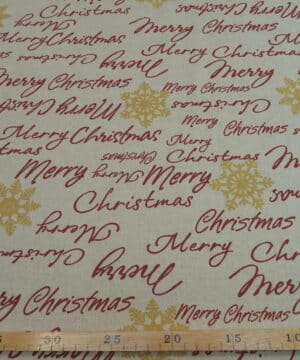 Merry Christmas
Merry Christmas
Merry
Merry Christmas
Christmas
Merry
Merry Christmas
Merry Christmas
Merry
Christmas
Christmas
Merry
Merry Christmas
Merry Christmas
Merry
Christmas
Christmas
Merry
Merry
Merry
Christmas
Merry
Christmas
Merry
Christmas
Merry
Christmas
Merry Christmas
Merry
Christmas
30 25 20 15